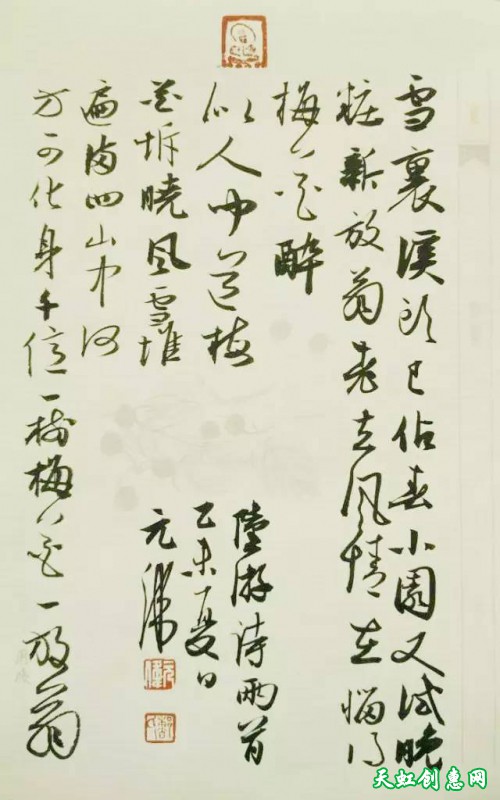 雪裏溪頭已佔春小園又試晚
粧新放翁老去風情在惱得
梅花醉
似人聞道梅
花坼曉風雪堆
遍滿四山中何
方可化身千億一樹梅花一放翁
陸游詩兩首
乙未夏日
元
天虹创惠网